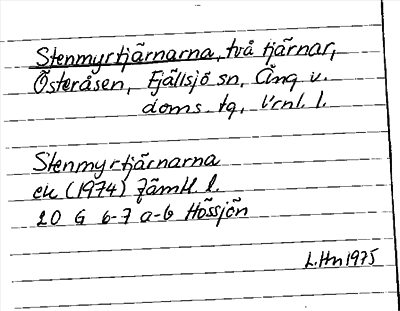 Stenmyrtjärnarna, två tjärnar,
Österåsen, Fjällsjö sn, Ång v.
doms. tg, V:rnl. l.
Stenmyrtjärnarna
ek (1974) Jämtl. l.
20 G 6-7 a-b Hössjön
L.Hn 1975